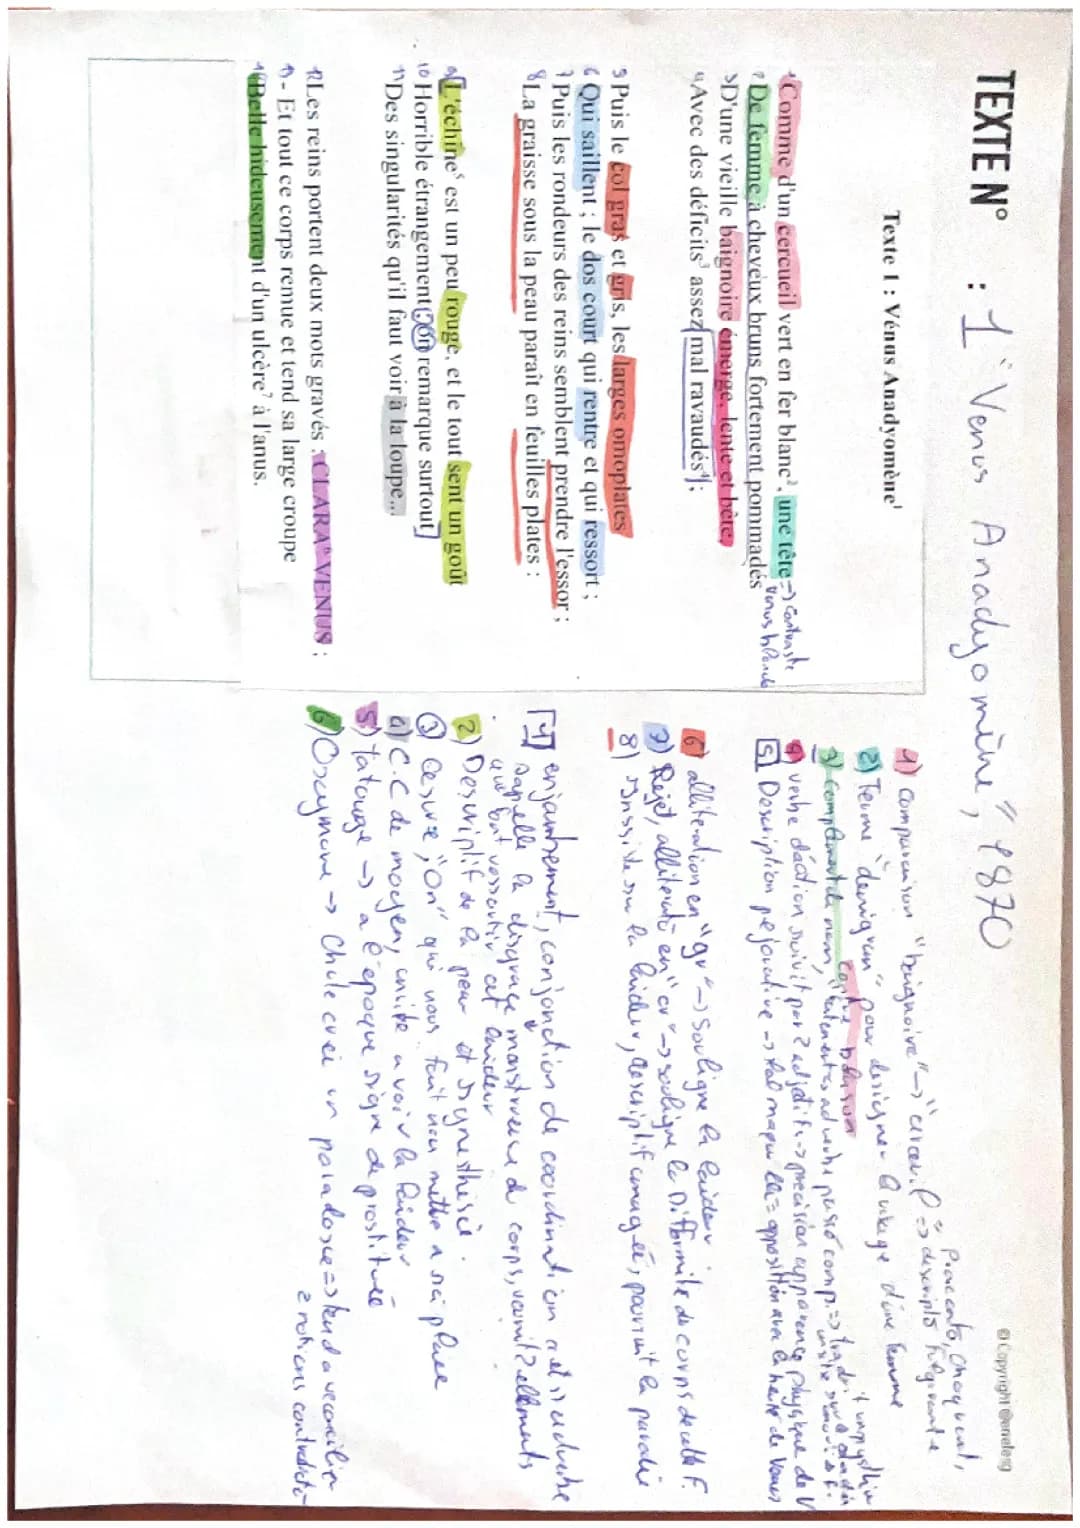 © Copyright
TEXTE N° : 1 "Venus Anadyomène," 1870
Texte 1 : Vénus Anadyomène¹
1 Comme d'un cercueil vert en fer blanc², une tête -> Contraste
2 De femme à cheveux bruns fortement pommadés Venus blonde
3 D'une vieille baignoire émerge, lente et bête,
4 Avec des déficits³ assez mal ravaudés⁴ ;
5 Puis le col gras et gris, les larges omoplates
6 Qui saillent ; le dos court qui rentre et qui ressort ;
7 Puis les rondeurs des reins semblent prendre l'essor ;
8 La graisse sous la peau paraît en feuilles plates :
9 L'échine⁵ est un peu rouge, et le tout sent un goût
10 Horrible étrangement ; on remarque surtout
11 Des singularités qu'il faut voir à la loupe...
12 Les reins portent deux mots gravés : CLARA⁶ VENUS ;
13 - Et tout ce corps remue et tend sa large croupe
14 Belle hideusement d'un ulcère⁷ à l'anus.
choquant,
1) Comparaison "baignoire" -> "cercueil" =>
2) Terme pour designer le visage d'une femme
3) Complément du nom, contre blason
4) verbe d'action suivit par 2 adjectifs -> précision apparence physique de V
5 Description péjorative -> = opposition avec la beauté de Venus
6) allitération en "gr" -> souligne la laideur
7) Rejet, en "cr" -> souligne la difformité du corps de cette F.
8) Insiste sur la laideur, descriptif imagée, poursuit la parodie
[4] enjambement, conjonction de coordination et adverbe
rappelle la disgrace monstrueuse du corps, éléments
cet laideur
2) Descriptif de la peau et synesthésie.
3) Césure, "on" qui nous fait nous mettre a sa place
4) C.C de moyen, invite a voir la laideur
5) tatouge -> a l'époque signe de prostituée
6) Oxymore -> Chute crée un paradoxe => tend a reconcilier
2 notions